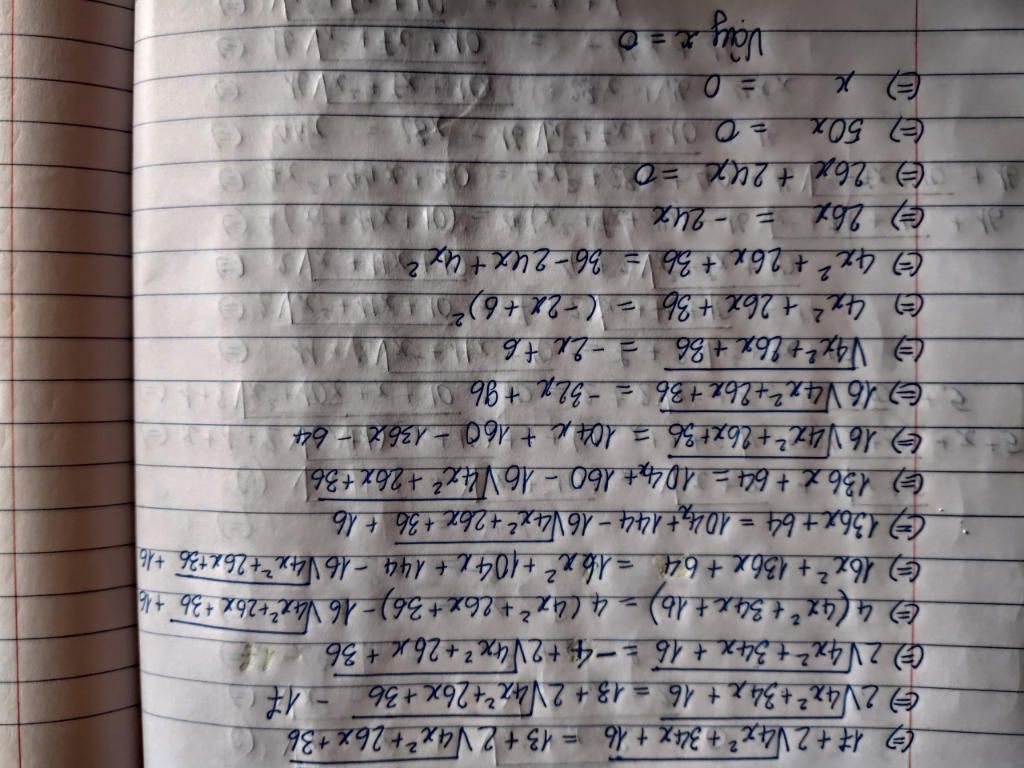 (=) 17 + 2√4x² + 34x + 16 = 13 + 2√4x² + 26x + 36
(=) 2√4x² + 34x + 16 = 13 + 2√4x² + 26x + 36 - 17
(=) 2√4x² + 34x + 16 = -4 + 2√4x² + 26x + 36
(=) 4(4x² + 34x + 16) = 4(4x² + 26x + 36) - 16√4x² + 26x + 36 + 16
(=) 16x² + 136x + 64 = 16x² + 104x + 144 - 16√4x² + 26x + 36 + 16
(=) 136x + 64 = 104x + 144 - 16√4x² + 26x + 36 + 16
(=) 136x + 64 = 104x + 160 - 16√4x² + 26x + 36
(=) 16√4x² + 26x + 36 = 104x + 160 - 136x - 64
(=) 16√4x² + 26x + 36 = -32x + 96
(=) √4x² + 26x + 36 = -2x + 6
(=) 4x² + 26x + 36 = (-2x + 6)²
(=) 4x² + 26x + 36 = 36 - 24x + 4x²
(=) 26x = -24x
(=) 26x + 24x = 0
(=) 50x = 0
(=) x = 0
Vậy x = 0